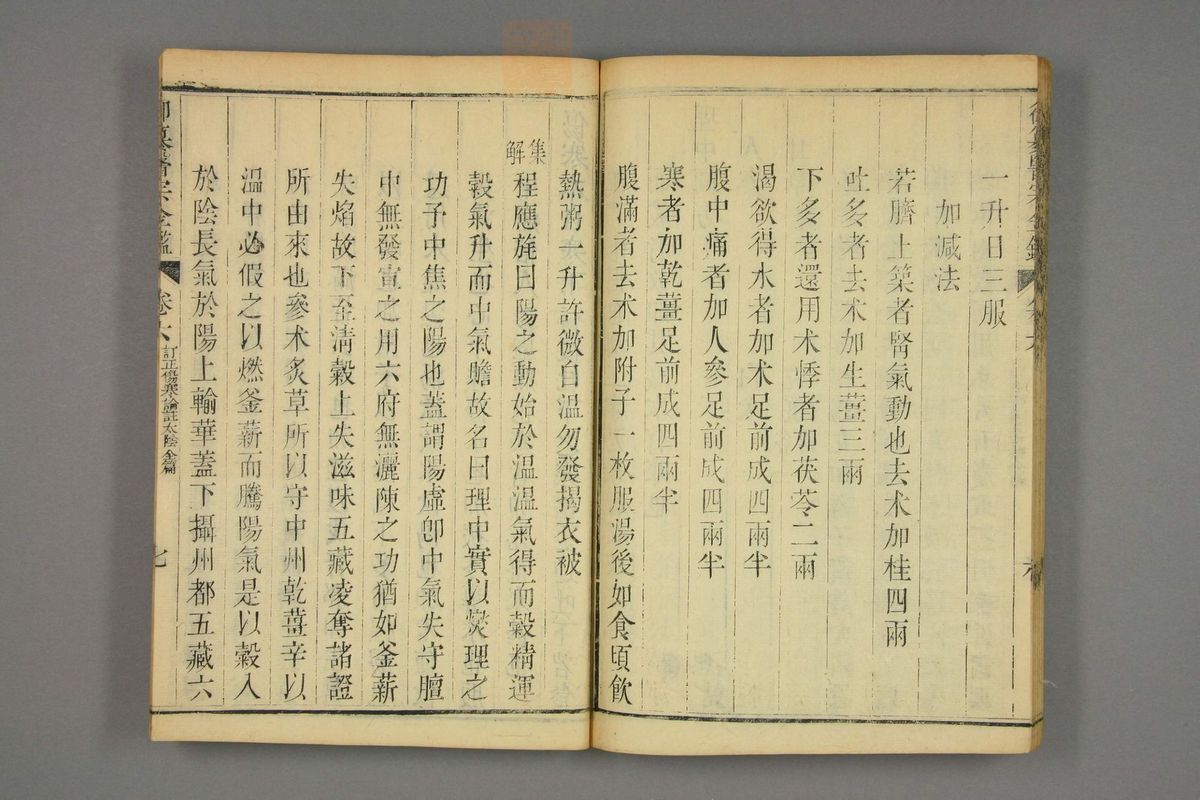 一升日三服
加減法
若臍上築者腎氣動也去朮加桂四兩
吐多者去朮加生薑三兩
下多者還用朮悸者加茯苓二兩
渴欲得水者加朮足前成四兩半
腹中痛者加人參足前成四兩半
寒者加乾薑足前成四兩半
腹滿者去朮加附子一枚服湯後如食頃飲
熱粥一升許微自溫勿發揭衣被
集解
程應旄曰陽之動始於溫溫氣得而穀精運
穀氣升而中氣贍故名曰理中實以燮理之
功予中焦之陽也蓋謂陽虛卽中氣失守膻
中無發宣之用六府無灑陳之功猶如釜薪
失焰故下至淸穀上失滋味五藏凌奪諸證
所由來也參朮炙草所以守中州乾薑辛以
溫中必假之以燃釜薪而騰陽氣是以穀入
於陰長氣於陽上輸華蓋下攝州都五藏六
御纂醫宗金鑑
卷六
訂正傷寒論註太陰全篇
七